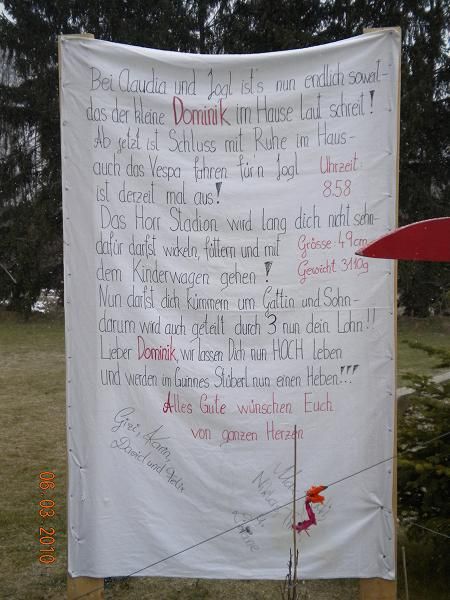 Bei Claudia und Jogl ist's nun endlich soweit-
das der kleine Dominik im Hause laut schreit!
Ab jetzt ist Schluss mit Ruhe im Haus-
auch das Vespa fahren für'n Jogl
ist derzeit mal aus!
Uhrzeit:
8:58
Das Horr Stadion wird lang dich nicht sehn-
dafür darfst wickeln, füttern und mit
dem Kinderwagen gehen!
Grösse: 49cm
Gewicht: 3110g
Nun darfst dich kümmern um Gattin und Sohn-
darum wird auch geteilt durch 3 nun dein Lohn!!
Lieber Dominik, wir lassen Dich nun HOCH leben
und werden im Guinnes Stüberl nun einen Heben!!!
Alles Gute wünschen Euch
von ganzen Herzen
Gizi, Karin,
David und Felix
06.03.2010